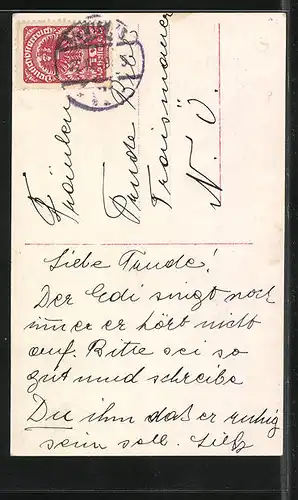 Fräulein
Trude
Traismauer
N. Ö.
Liebe Trude!
Der Edi singt noch
immer er hört nicht
auf. Bitte sei so
gut und schreibe
Du ihm daß er ruhig
sein soll.